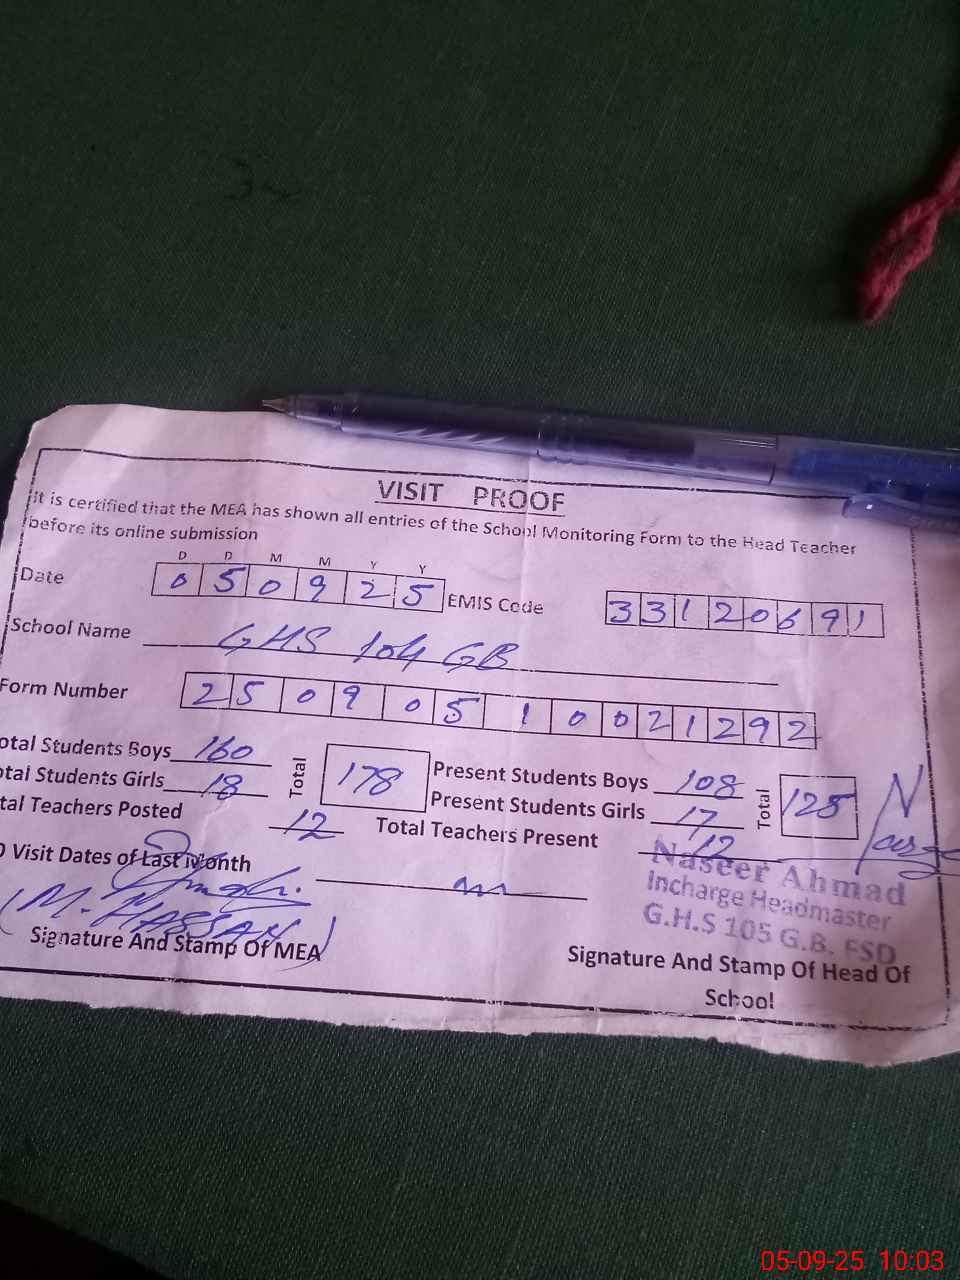 VISIT PROOF
it is certified that the MEA has shown all entries of the School Monitoring Form to the Head Teacher
before its online submission
D D M M Y Y
Date 0 5 0 9 2 5 EMIS Code 3 3 1 2 0 6 9 1
School Name GHS 104 GB
Form Number 2 5 0 9 0 5 1 0 0 2 1 2 9 2
otal Students Boys 160 Total 178 Present Students Boys 108 Total 125
otal Students Girls 18 Present Students Girls 17
tal Teachers Posted 12 Total Teachers Present 12
O Visit Dates of Last Month
Naseer Ahmad
Incharge Headmaster
G.H.S 105 G.B. FSD
(M. HASSAN)
Signature And Stamp Of MEA
Signature And Stamp Of Head Of
School
05-09-25 10:03